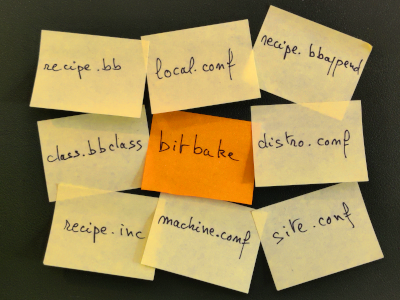 recipe.bb
local.conf
recipe.bbappend
class.bbclass
bitbake
distro.conf
recipe.inc
machine.conf
site.conf